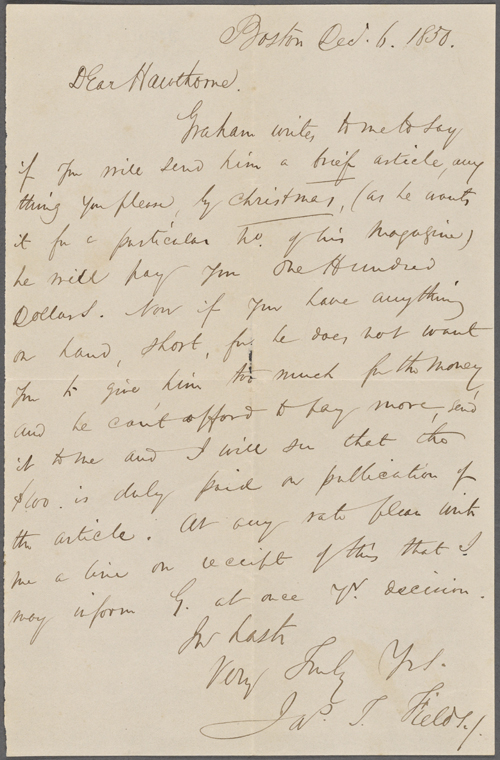 Boston Dec. 6. 1850.
Dear Hawthorne.
Graham writes to me to say
if you will send him a brief article, any
thing you please, by Christmas, (as he wants
it for a particular No. of his Magazine)
he will pay you one Hundred
Dollars. Now if you have anything
on hand, short, for he does not want
you to give him too much for the money,
and he can't afford to pay more, send
it to me and I will see that the
$100. is duly paid on publication of
the article. At any rate please write
me a line on receipt of this that I
may inform G. at once yr. decision.
In haste
Very Truly Yrs.
Jas. T. Fields.